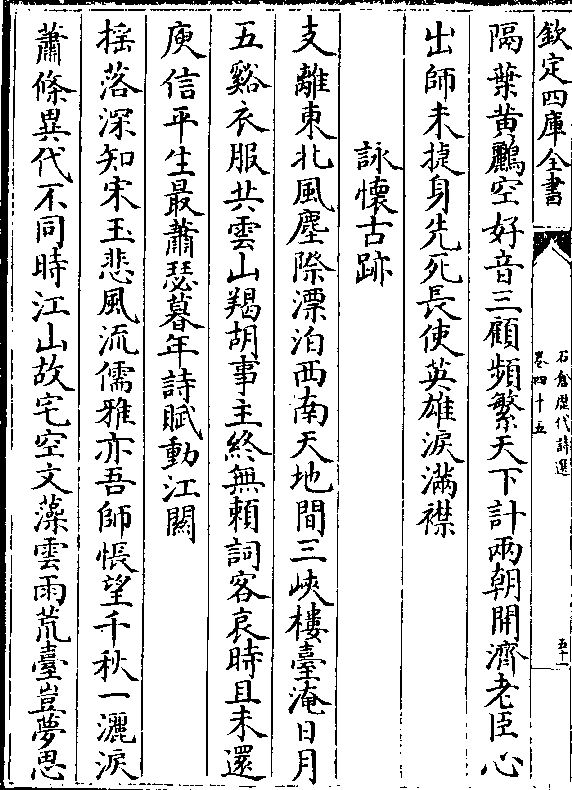 欽定四庫全書
石倉歴代詩選
卷四十五
五十一
隔葉黄鸝空好音三顧頻繁天下計兩朝開濟老臣心
出師未捷身先死長使英雄淚滿襟
詠懐古跡
支離東北風塵際漂泊西南天地間三峽樓臺淹日月
五谿衣服共雲山羯胡事主終無賴詞客哀時且未還
庾信平生最蕭瑟暮年詩賦動江闗
揺落深知宋玉悲風流儒雅亦吾師悵望千秋一灑淚
蕭條異代不同時江山故宅空文藻雲雨荒臺豈夢思